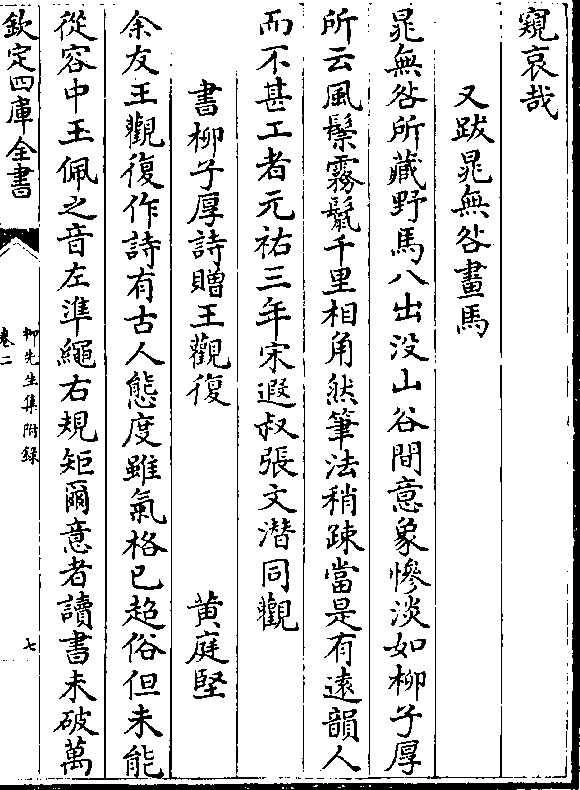 窺哀哉
又跋晁無咎畫馬
晁無咎所藏野馬八出没山谷間意象慘淡如柳子厚
所云風鬃霧鬛千里相角然筆法稍踈當是有逺韻人
而不甚工者元祐三年宋遐叔張文潜同觀
書柳子厚詩贈王觀復 黄庭堅
余友王觀復作詩有古人態度雖氣格已超俗但未能
從容中玉佩之音左準繩右規矩爾意者讀書未破萬
欽定四庫全書
柳先生集附錄
卷二
七